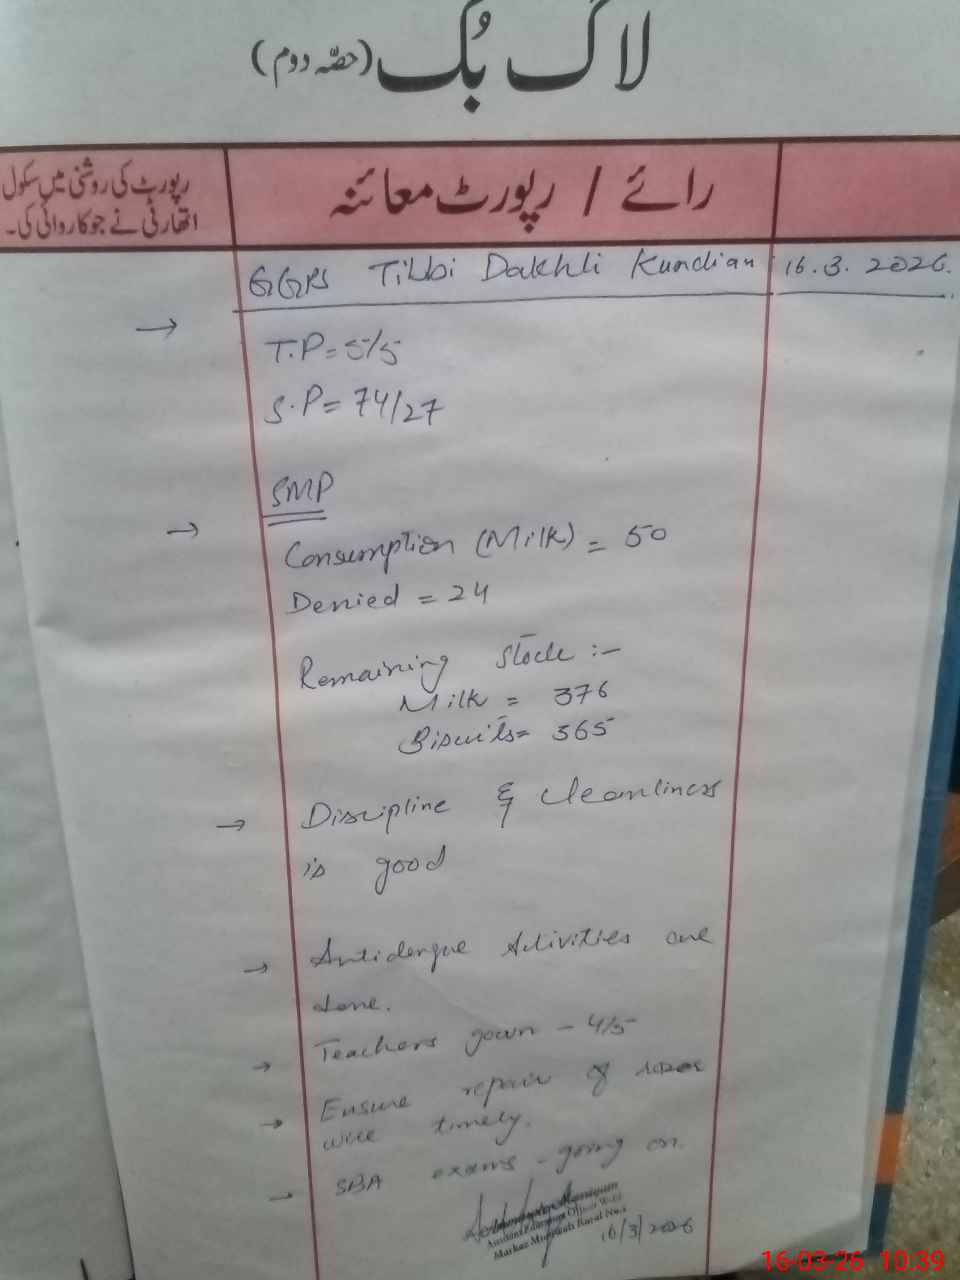 لاگ بُک (حصّہ دوم)
رائے / رپورٹ معائنہ
رپورٹ کی روشنی میں سکول
اتھارٹی نے جو کاروائی کی۔
GGPS Tibbi Dakhli Kundian 16.3.2026.
→ T.P = 5/5
S.P = 74/27
→ SMP
Consumption (Milk) = 50
Denied = 24
Remaining Stock :-
Milk = 376
Biscuits = 365
→ Discipline & Cleanliness
is good
→ Antidengue Activities are
done.
→ Teachers gown - 4/5
→ Ensure repair of
wire timely.
→ SBA exams - going on.
Assistant Education Officer
Markaz
16/3/2026
16-03-26 10:39